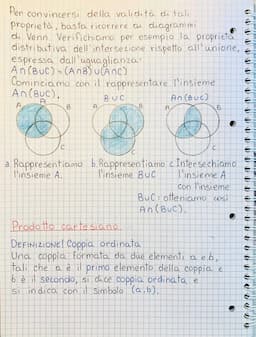 Per convincersi della validità di tali
proprietà, basta ricorrere ai diagrammi
di Venn. Verifichiamo per esempio la proprietà
distributiva dell'intersezione rispetto all'unione,
espressa dall'uguaglianza:
A∩(B∪C)=(A∩B)∪(A∩C)
Cominciamo con il rappresentare l'insieme
A∩(B∪C).
A B∪C A∩(B∪C)
A B A B A B
C C C
a. Rappresentiamo b. Rappresentiamo c. Intersechiamo
l'insieme A. l'insieme B∪C l'insieme A
con l'insieme
B∪C: otteniamo così
A∩(B∪C).
Prodotto cartesiano
DEFINIZIONE| Coppia ordinata
Una coppia formata da due elementi a e b,
tali che a è il primo elemento della coppia e
b è il secondo, si dice coppia ordinata e
si indica con il simbolo (a,b).